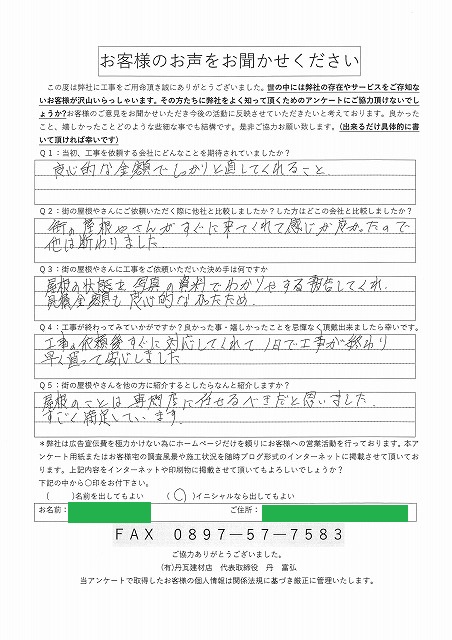 お客様のお声をお聞かせください
この度は弊社に工事をご用命頂き誠にありがとうございました。世の中には弊社の存在やサービスをご存知な
いお客様が沢山いらっしゃいます。その方たちに弊社をよく知って頂くためのアンケートにご協力頂けないでし
ょうか?お客様のご意見をお聞かせいただき今後の活動に反映させていただきたいと考えております。良かった
こと、嬉しかったことどのような些細な事でも結構です。是非ご協力お願い致します。(出来るだけ具体的に書
いて頂ければ幸いです)
Q1:当初、工事を依頼する会社にどんなことを期待されていましたか?
良心的な金額でしっかりと直してくれること、
Q2:街の屋根やさんにご依頼いただく際に他社と比較しましたか?した方はどこの会社と比較しましたか?
街の屋根やさんがすぐに来てくれて感じが良かったので
他は断わりました
Q3:街の屋根やさんに工事をご依頼いただいた決め手は何ですか
屋根の状態を写真の資料でわかりやする報告してくれ、
見積金額も良心的なだったため、
Q4:工事が終わってみていかがですか?良かった事・嬉しかったことを忌憚なく頂戴出来ましたら幸いです。
工事の依頼後すぐに対応してくれて1日で工事が終わり
早く直って安心しました
Q5:街の屋根やさんを他の方に紹介するとしたらなんと紹介しますか?
屋根のことは専門店に任せるべきだと思いました、
すごく満足しています。
*弊社は広告宣伝費を極力かけない為にホームページだけを頼りにお客様への営業活動を行っております。本ア
ンケート用紙またはお客様宅の調査風景や施工状況を随時ブログ形式のインターネットに掲載させて頂いてお
ります。上記内容をインターネットや印刷物に掲載させて頂いてもよろしいでしょうか?
下記の中から〇印をお付下さい。
( )名前を出してもよい ( 〇 )イニシャルなら出してもよい
お名前: ご住所:
FAX 0897-57-7583
ご協力ありがとうございました。
(有)丹瓦建材店 代表取締役 丹 富弘
当アンケートで取得したお客様の個人情報は関係法規に基づき厳正に管理いたします。